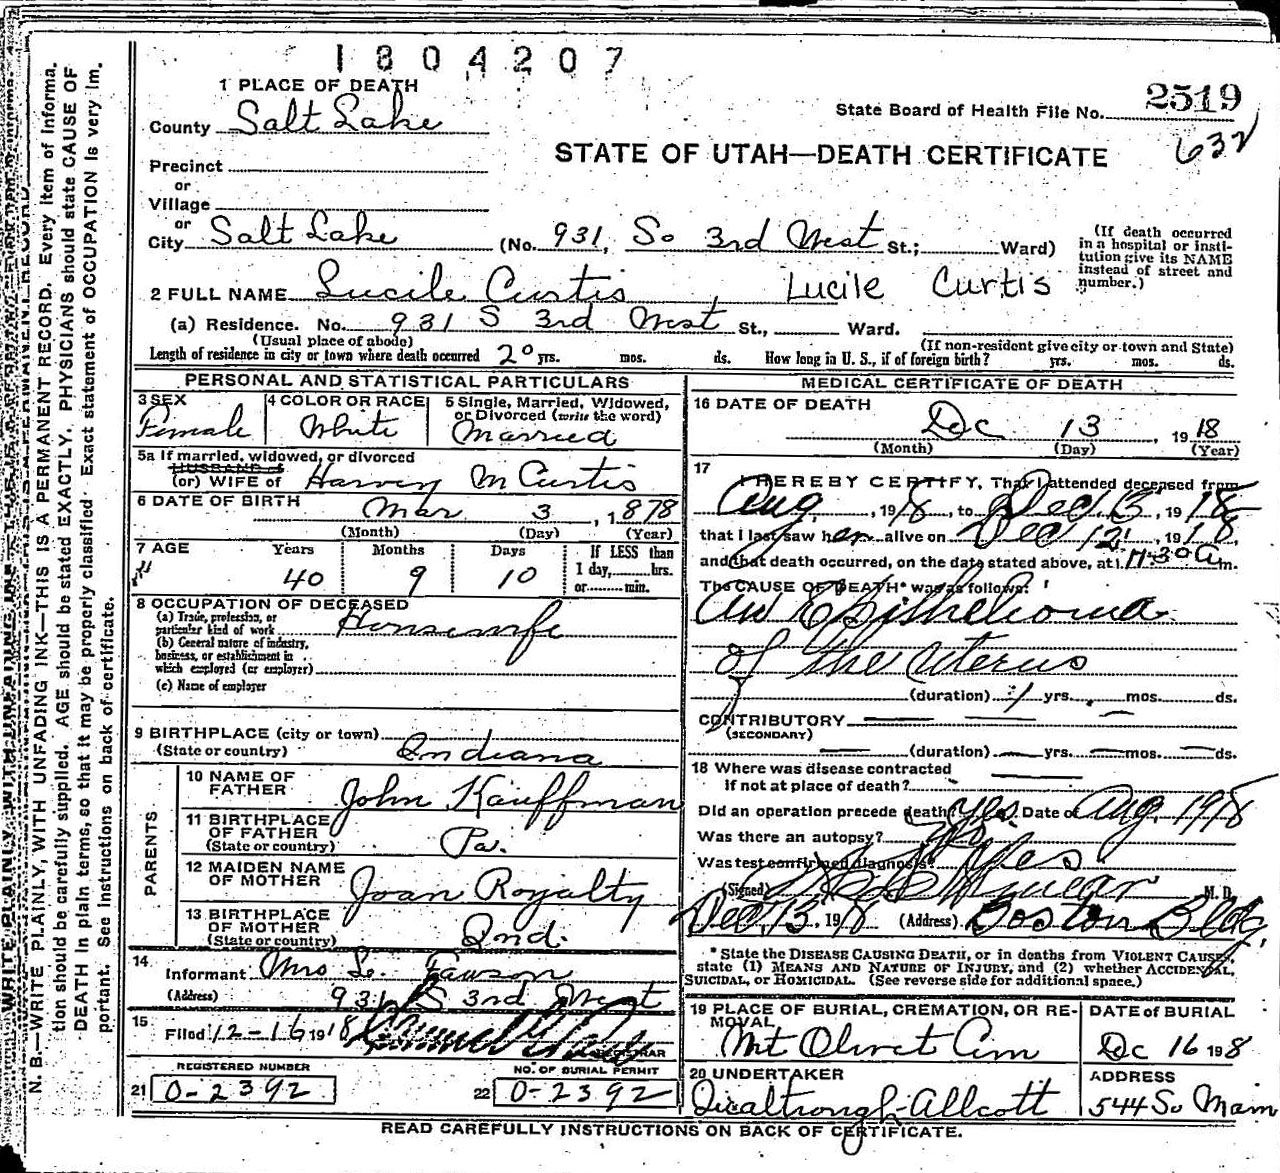 1804207
1 PLACE OF DEATH
State Board of Health File No. 2519
County Salt Lake
632
STATE OF UTAH—DEATH CERTIFICATE
Precinct
or
Village
or
City Salt Lake (No. 931, So 3rd West St.; Ward)
(If death occurred in a hospital or insti-
tution give its NAME
instead of street and
number.)
2 FULL NAME Lucile Curtis, Lucile Curtis
(a) Residence. No. 931 S 3rd West St., Ward.
(Usual place of abode) (If non-resident give city or town and State)
Length of residence in city or town where death occurred 20 yrs. mos. ds. How long in U. S., if of foreign birth? yrs. mos. ds.
PERSONAL AND STATISTICAL PARTICULARS
3 SEX Female
4 COLOR OR RACE White
5 Single, Married, Widowed,
or Divorced (write the word)
Married
5a If married, widowed, or divorced
HUSBAND of
(or) WIFE of Harvey M Curtis
6 DATE OF BIRTH Mar 3, 1878
(Month) (Day) (Year)
7 AGE Years Months Days If LESS than
1 day, hrs.
or min.
40 9 10
8 OCCUPATION OF DECEASED
(a) Trade, profession, or
particular kind of work Housewife
(b) General nature of industry,
business, or establishment in
which employed (or employer)
(c) Name of employer
9 BIRTHPLACE (city or town)
(State or country) Indiana
PARENTS
10 NAME OF
FATHER John Kauffman
11 BIRTHPLACE
OF FATHER
(State or country) Pa.
12 MAIDEN NAME
OF MOTHER Joan Royalty
13 BIRTHPLACE
OF MOTHER
(State or country) Ind.
14
Informant Mrs L. Fawson
(Address) 931 S 3rd West
15
Filed 12-16 1918
REGISTRAR
REGISTERED NUMBER NO. OF BURIAL PERMIT
21 0-2392 22 0-2392
MEDICAL CERTIFICATE OF DEATH
16 DATE OF DEATH
Dec 13, 1918
(Month) (Day) (Year)
17
I HEREBY CERTIFY, That I attended deceased from
Aug, 1918, to Dec. 13, 1918
that I last saw her alive on Dec 12, 1918,
and that death occurred, on the date stated above, at 11-30 a m.
The CAUSE OF DEATH* was as follows:
An Epithelioma
of the Uterus
(duration) 1 yrs. mos. ds.
CONTRIBUTORY
(SECONDARY)
(duration) yrs. mos. ds.
18 Where was disease contracted
if not at place of death?
Did an operation precede death? Yes. Date of Aug. 1918
Was there an autopsy?
Was test confirmed diagnosis? Yes
(Signed) M. D.
Dec. 13, 1918 (Address) Boston Bldg.
*State the DISEASE CAUSING DEATH, or in deaths from VIOLENT CAUSES,
state (1) MEANS AND NATURE OF INJURY, and (2) whether ACCIDENTAL,
SUICIDAL, or HOMICIDAL. (See reverse side for additional space.)
19 PLACE OF BURIAL, CREMATION, OR RE-
MOVAL
Mt Olivet Cem
DATE of BURIAL
Dec 16 1918
20 UNDERTAKER
ADDRESS
544 So Main
READ CAREFULLY INSTRUCTIONS ON BACK OF CERTIFICATE.
WRITE PLAINLY, WITH UNFADING INK—THIS IS A PERMANENT RECORD
N. B.—WRITE PLAINLY, WITH UNFADING INK—THIS IS A PERMANENT RECORD. Every item of informa-
tion should be carefully supplied. AGE should be stated EXACTLY. PHYSICIANS should state CAUSE OF
DEATH in plain terms, so that it may be properly classified. Exact statement of OCCUPATION is very im-
portant. See instructions on back of certificate.